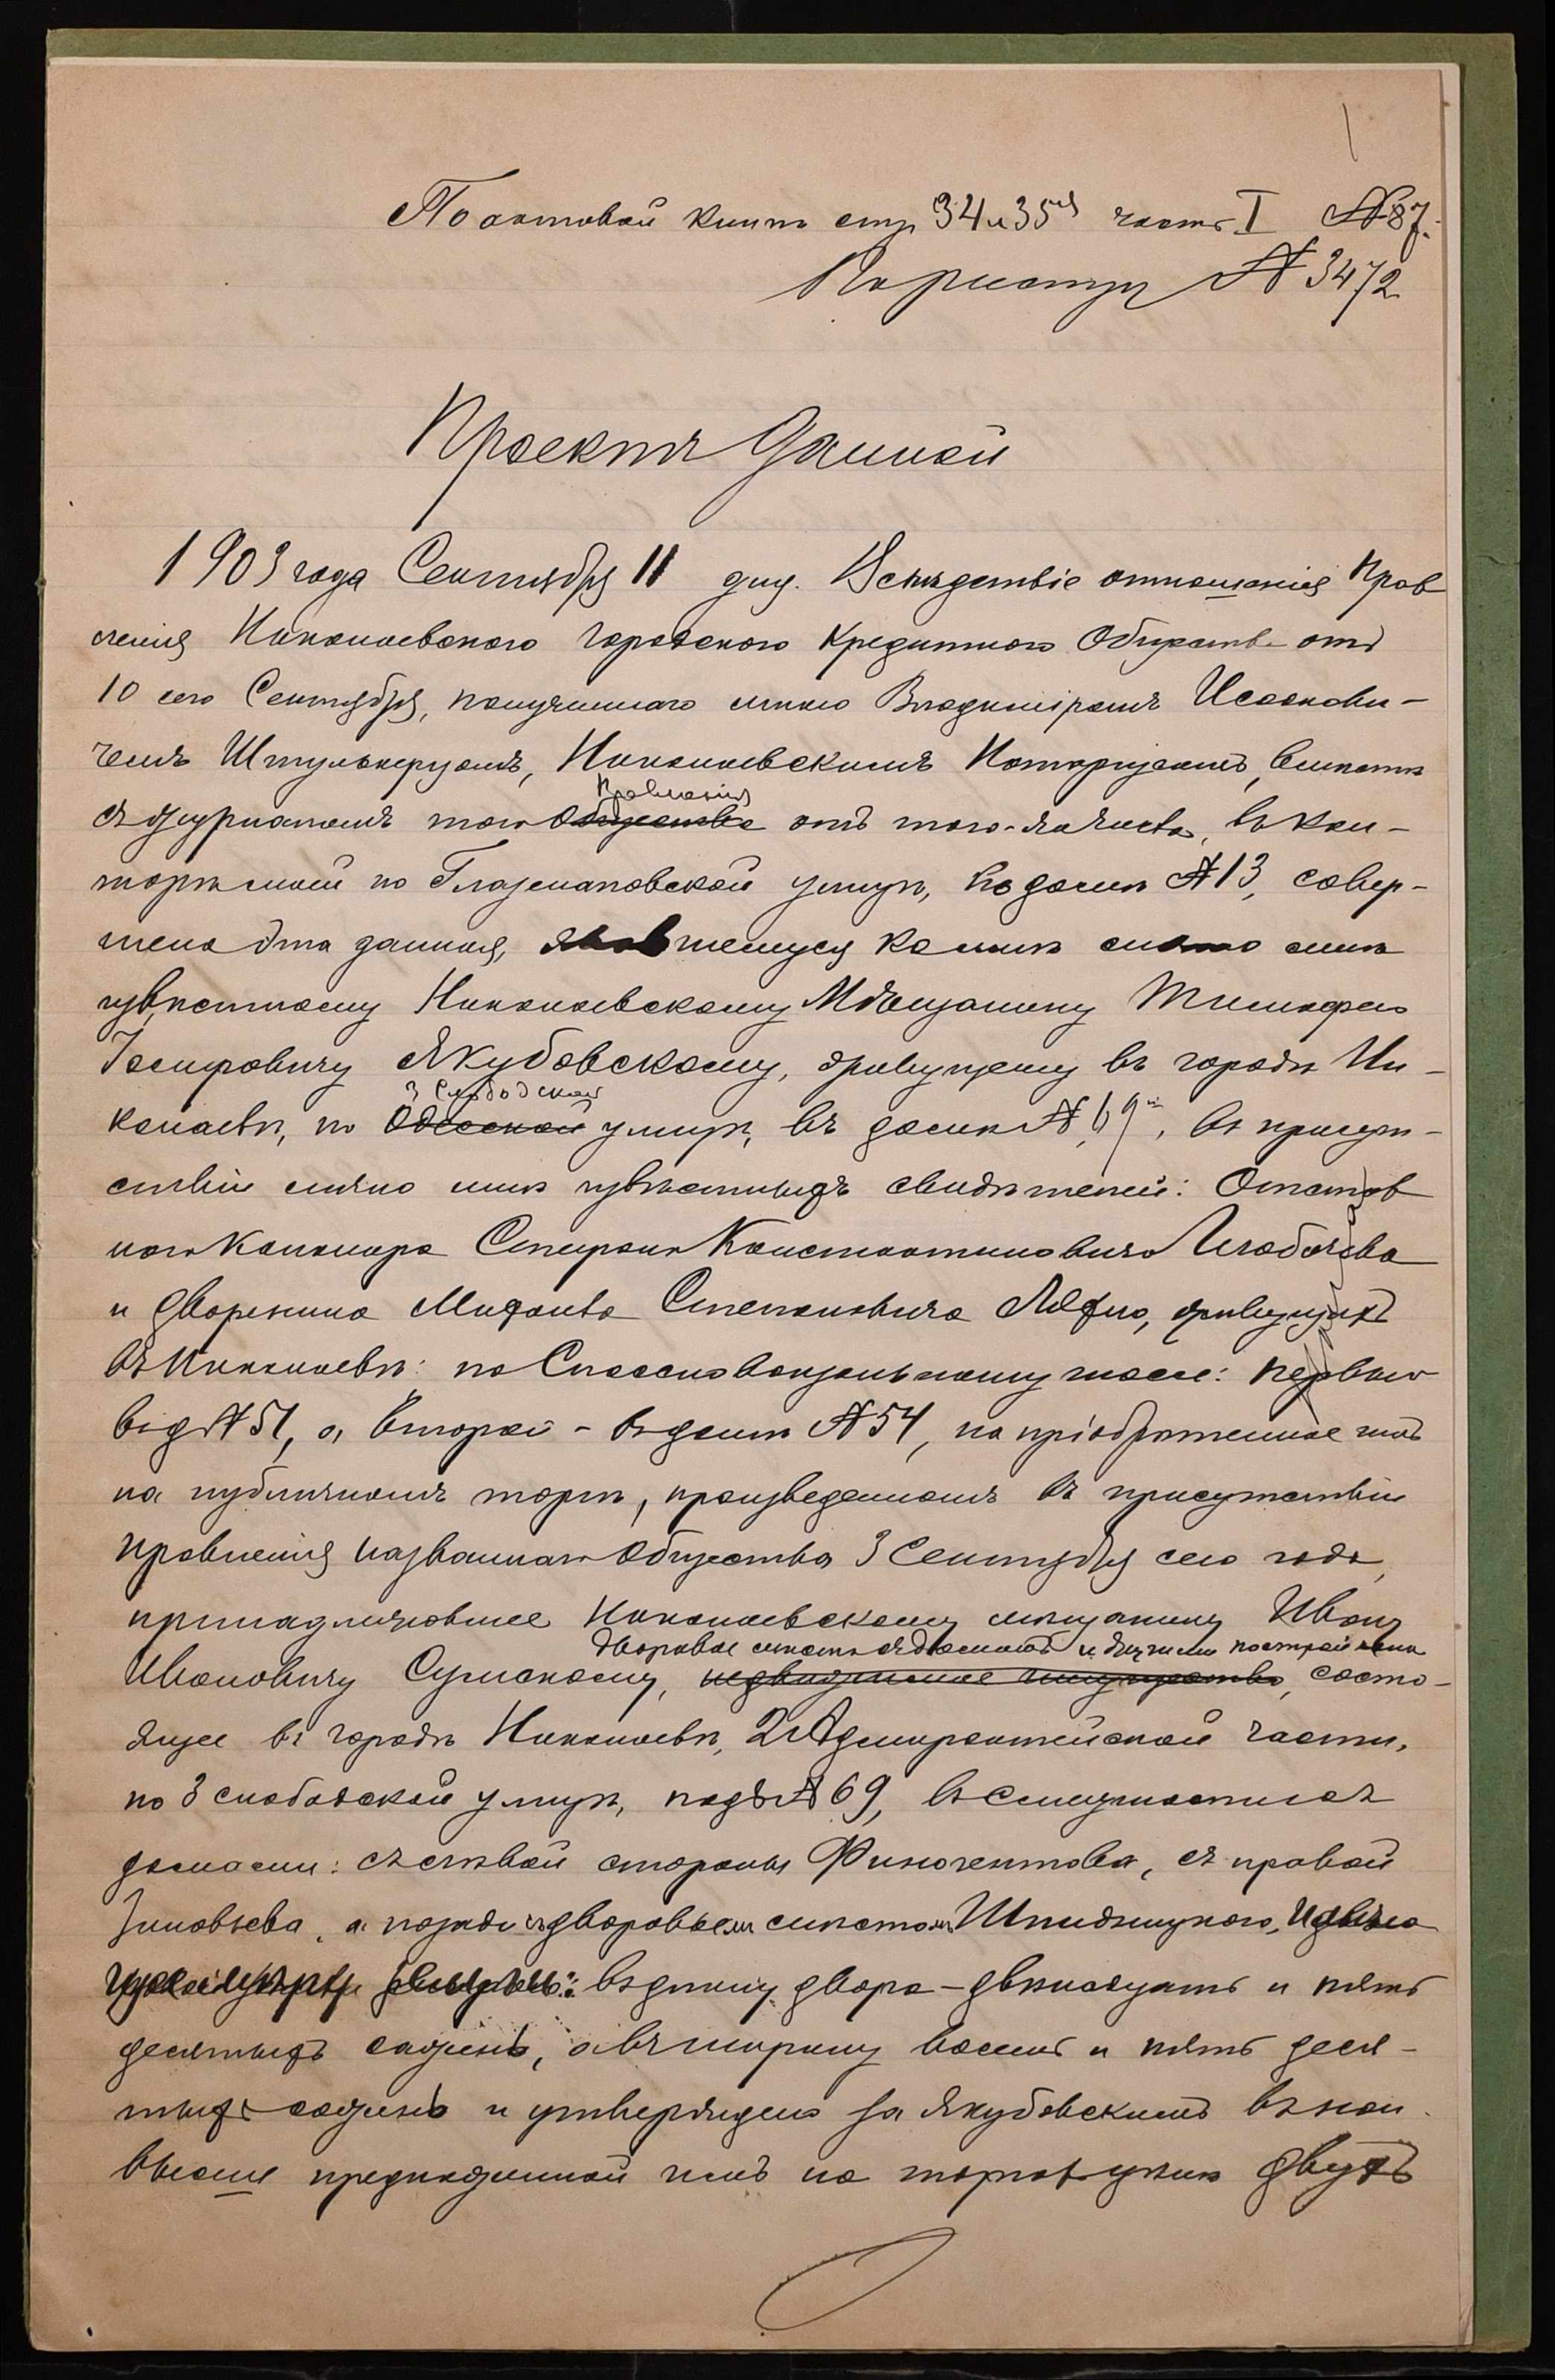 По актовой книгѣ стр 34 и 35ой часть I № 87.
По реестру № 3472
Проектъ Данной
1903 года Сентября 11 дня. Вслѣдствіе отношенія Прав
ленія Николаевского Городского Кредитного Общества отъ
10 сего Сентября, полученнаго мною Владиміромъ Исаакови-
чемъ Штульмерзомъ, Николаевскимъ Нотаріусомъ, вмѣстѣ
съ журналомъ того Общества Правленія отъ того-же числа, въ кон-
торѣ моей по Глазенаповской улицѣ, въ домѣ № 13, совер-
шена эта данная, явившемуся ко мнѣ лично мнѣ
извѣстному Николаевскому Мѣщанину Тимофею
Іосифовичу Якубовскому, живущему въ городѣ Ни-
колаевѣ, по Одесской 3 Слободской улицѣ, въ домѣ № 69, въ присут-
ствіи лично мнѣ извѣстныхъ свидѣтелей: Отстав
ного Константиновича
и дворянина Степановича живущихъ
въ Николаевѣ: по Спасско вокзальному шоссе: первый
въ д № 51, а второй - въ домѣ № 54, на пріобрѣтенное имъ
на публичномъ торгѣ, произведенномъ въ присутствіи
правленія названнаго Общества 3 Сентября сего года,
принадлежавшее Николаевскому мѣщанину Ивану
Ивановичу Сумскому, недвижимое имущество дворовое мѣсто съ домомъ и другими постройками, состо-
ящее въ городѣ Николаевѣ, 2 Адмиралтейской части,
по 3 слободской улицѣ, подъ № 69, въ смежности съ
домами: съ лѣвой стороны Финогентова, съ правой
Зиновьева, а позади съ дворовымъ мѣстомъ
въ длину двора - двѣнадцать и пять
десятыхъ сажень, а въ ширину восемь и пять деся-
тыхъ сажень и утверждено за Якубовскимъ въ наи
высшей предложенной имъ на торгѣ цѣнѣ двухъ